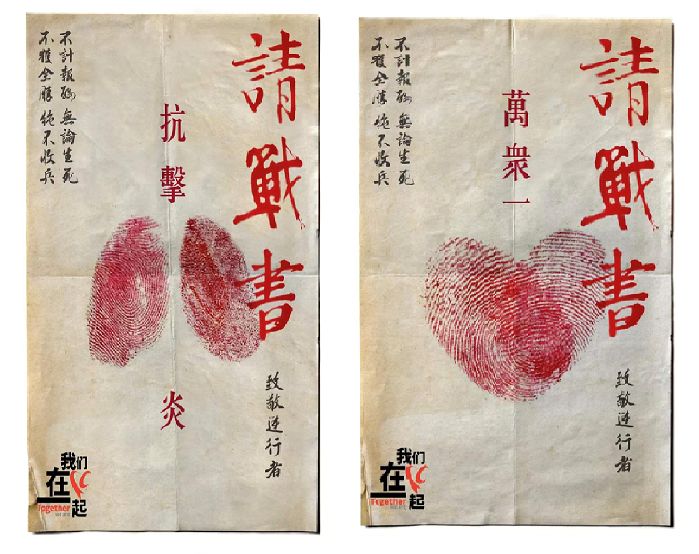 請戰書
抗擊
炎
不計報酬 無論生死
不獲全勝 絕不收兵
致敬逆行者
我们
在
起
Together
請戰書
萬衆一
不計報酬 無論生死
不獲全勝 絕不收兵
致敬逆行者
我们
在
起
Together